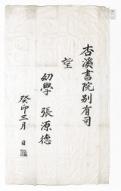 杏溪書院別有司
望
幼學 張源德
癸卯三月 日